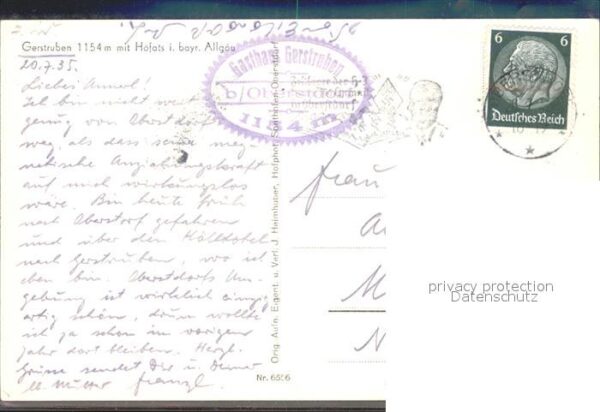 Gerstruben 1154 m mit Höfats i. bayr. Allgäu
20.7.35.
Liebes Annerl!
Ich bin nicht weit
genug von Oberstdorf
weg, als dass seine mag-
netische Anziehungskraft
auf mich wirkungslos
wäre. Bin heute früh
nach Oberstorf gefahren
und über den Hölltobel
nach Gerstruben, wo ich
eben bin. Oberstdorfs Um-
gebung ist wirklich einzig
artig schön, drum wollte
ich ja schon im vorigen
Jahr dort bleiben. Herzl.
Grüsse sendet Dir u. Deiner
lb. Mutter Franzl.
Gasthaus Gerstruben
b/Oberstdorf
1154 m
Orig. Aufn. Eigent. u. Verl. J. Heimhuber, Hofphot. Sonthofen-Oberstdorf
Nr. 6556
6 6
Deutsches Reich
Frau
M
N
privacy protection
Datenschutz